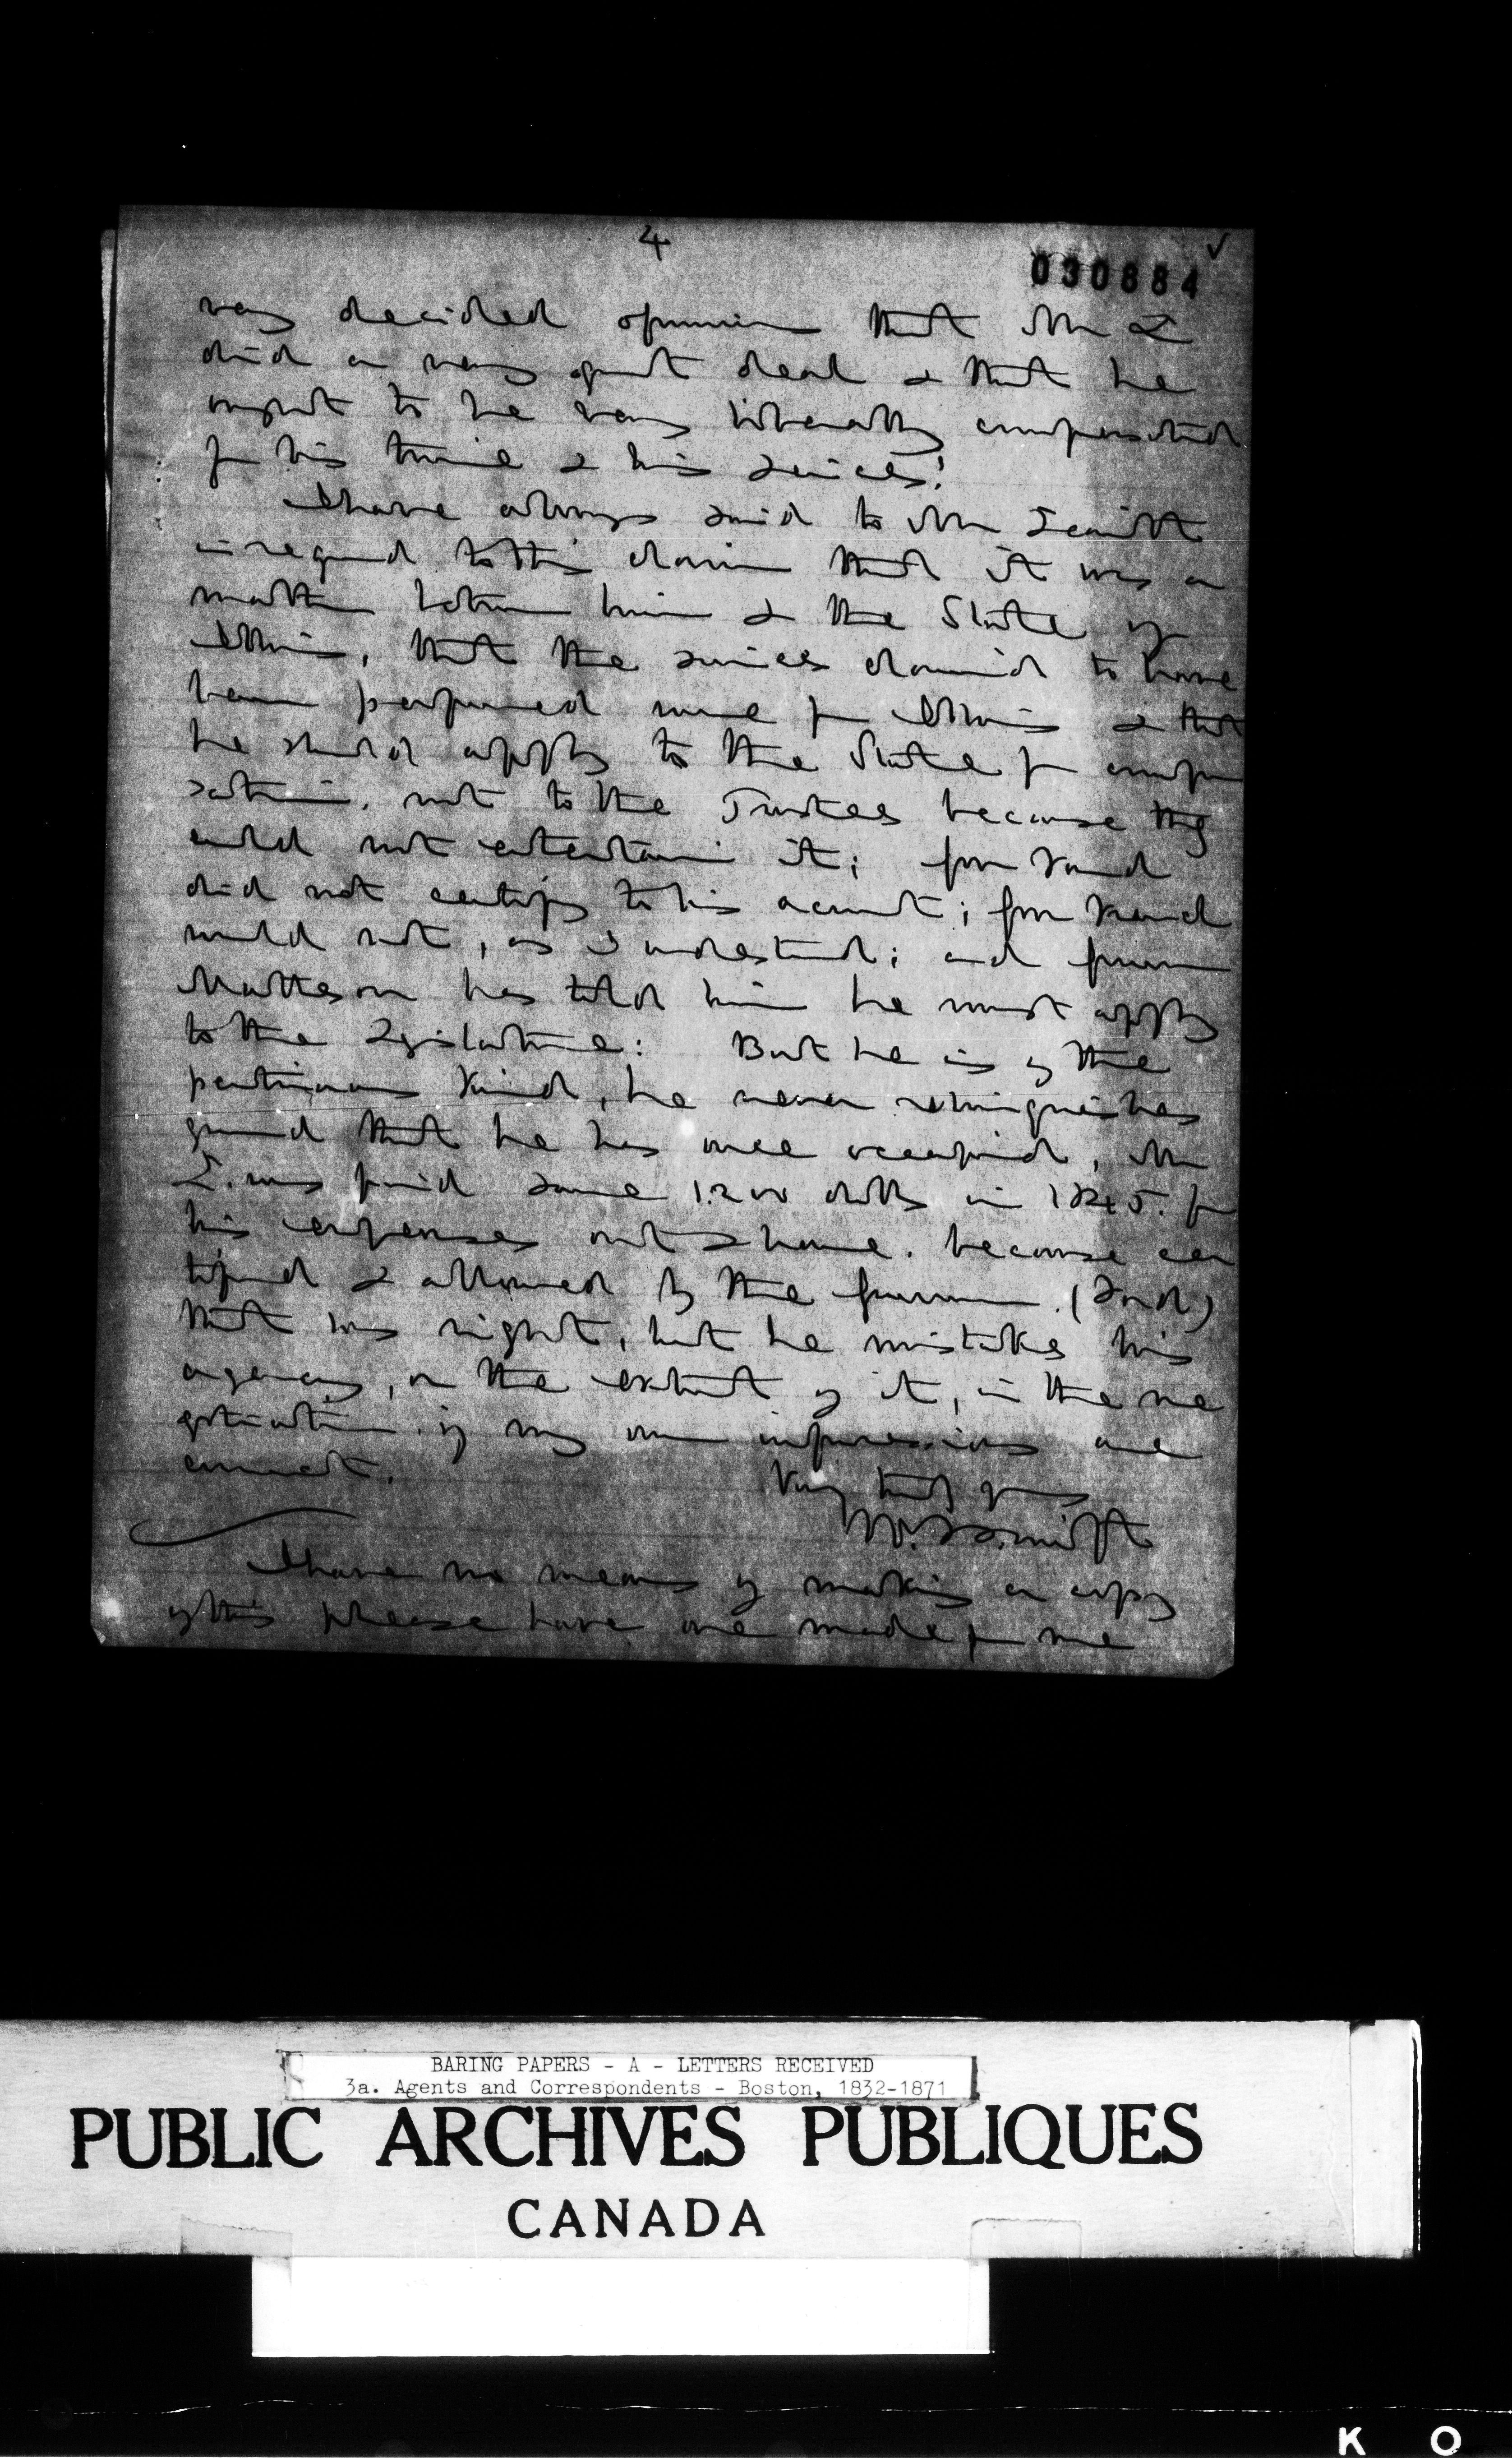 4
030884
very decided opinion that Mr L
did a very great deal & that he
ought to be very liberally compensated
for his time & his services!
I have always said to Mr Leavitt
in regard to this claim that it was a
matter between him & the State of
Illinois, that the services claimed to have
been performed were for Illinois & that
he should apply to the State for compen
sation, not to the Trustees because they
could not entertain it; Gov Ford
did not certify to his account; Gov French
would not, as I understand; and Governor
Matteson has told him he must apply
to the Legislature: But he is of the
pertinacious kind, he never relinquishes
ground that he has once occupied, Mr
L. was paid some 1200 dolls in 1845. for
his expenses out & home. because cer
tified & allowed by the Governor. (Ford)
that was right, but he mistakes his
agency, or the extent of it, in the ne
gotiation. if my own impressions are
correct.
Very truly yours
W. H. Swift
I have no means of making a copy
of this please have one made for me
BARING PAPERS - A - LETTERS RECEIVED
3a. Agents and Correspondents - Boston, 1832-1871
PUBLIC ARCHIVES PUBLIQUES
CANADA
K O